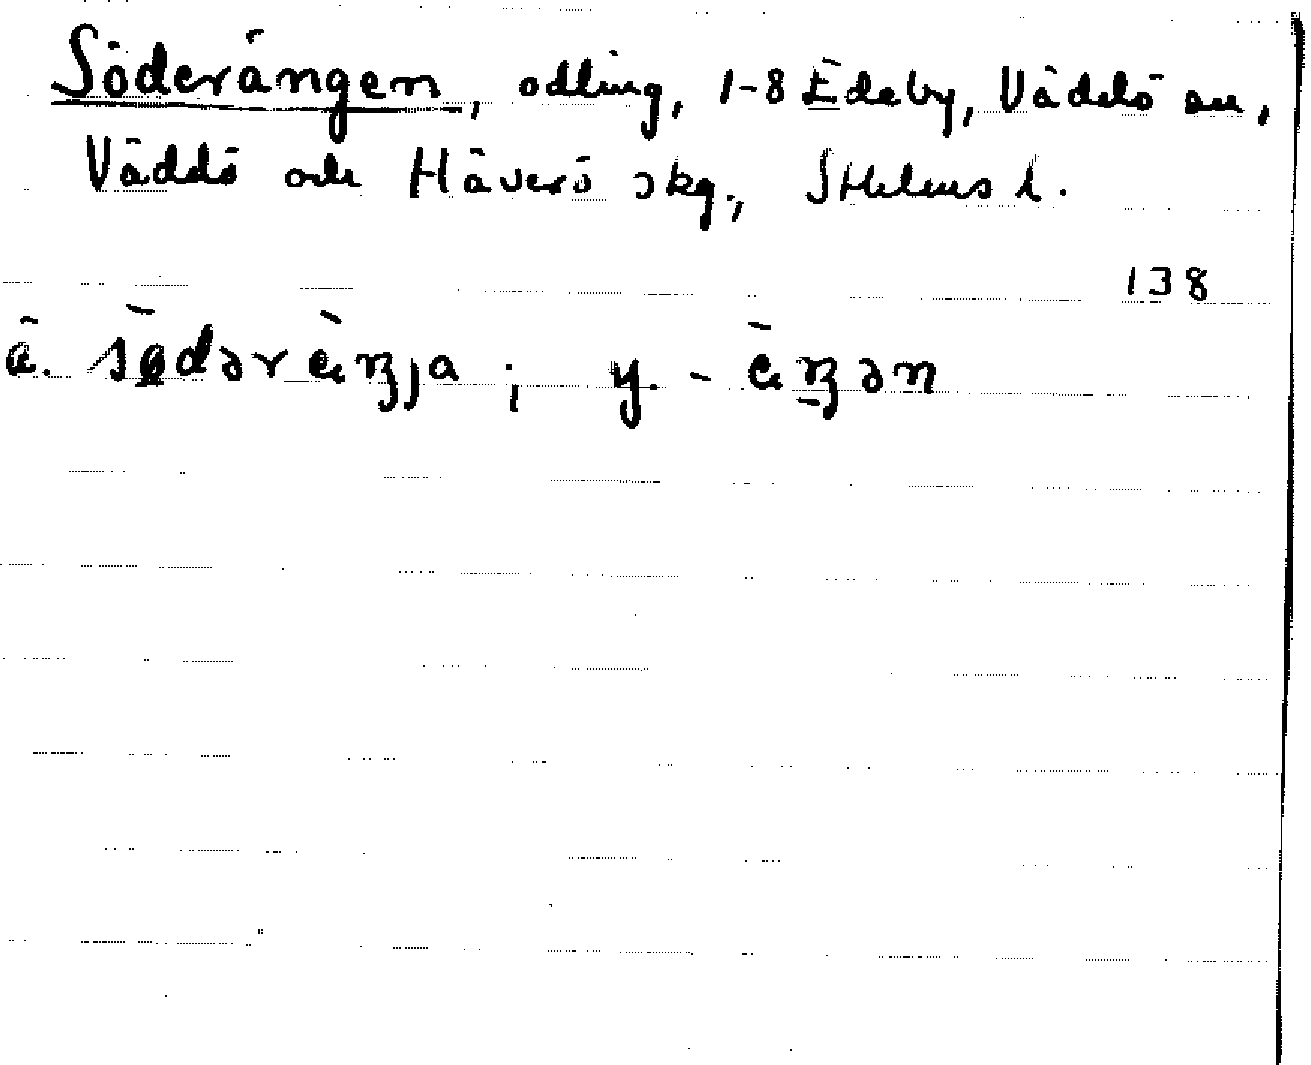 Söderängen, odling, 1-8 Edeby, Väddö sn,
Väddö och Häverö skg., Sthlms l.
138
ä. sø̀dərὲŋja ; y. -ὲŋən